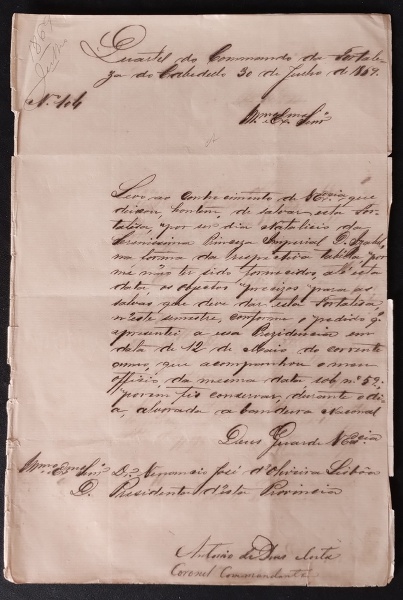 1869
Julho
Quartel do Commando da Fortale-
za do Cabedello 30 de Julho de 1869.
N.º 104
Illmo. Exmo. Snr.
Levo ao conhecimento de V.Excia. que
deixou, hontem, de salvar esta For-
talisa, por ser dia natalicio da
Serenissima Princeza Imperial D. Izabel,
na forma da respectiva tabella, por
me não ter sido fornecidos, até esta
data, os objectos precizos para as
salvas que deve dar esta Fortalisa,
n'este semestre, conforme o pedido q.
apresentei a essa Prezidencia em
data de 12 de Maio do corrente
anno, que acompanhou o meu
officio, da mesma data sob n.º 59;
porem fis conservar, durante o di-
a, alvorada a bandeira Nacional
Deus Guarde V.Excia
Illmo. Exmo. Snr. Dr. Venancio José d'Oliveira Lisbôa
D. Presidente d'esta Provincia
Antonio de Dias
Coronel Commandante